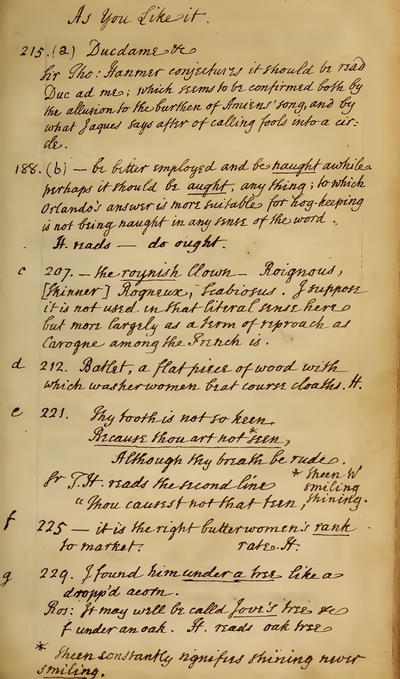 As You Like it.
215. (a) Ducdame &c
Sir Tho: Hanmer conjectures it should be read
Duc ad me; which seems to be confirmed both by
the allusion to the burthen of Amiens' song, and by
what Jaques says after of calling fools into a cir-
cle.
188. (b) — be better employed and be naught awhile
perhaps it should be aught, any thing; to which
Orlando's answer is more suitable for hog-keeping
is not being naught in any sense of the word.
H. reads — do ought.
c 207. — the roynish Clown — Roignous,
[Skinner] Rogneux, Scabiosus. I suppose
it is not used in that literal sense here
but more largely as a term of reproach as
Carogne among the French is.
d 212. Batlet, a flat piece of wood with
which washerwomen beat course cloaths. H.
e 221. Thy tooth is not so keen
Because thou art not * seen,
Although thy breath be rude.
Sr T. H. reads the second line
"Thou causest not that teen,
* Sheen W
smiling
shining.
f 225 — it is the right butterwomen's rank
to market. rate. H.
g 229. I found him under a tree like a
dropp'd acorn.
Ros: It may well be called Jove's tree &c
f under an oak. H. reads oak tree
* Sheen constantly signifies shining never
smiling.